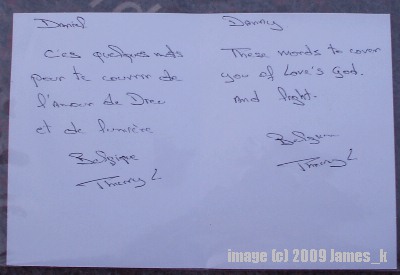 Daniel
C'es quelques mots
pour te couvrir de
l'Amour de Dieu
et de lumière
Belgique
Thierry L
Danny
These words to cover
you of Love's God.
And light.
Belgium
Thierry L
image (c) 2009 James_k